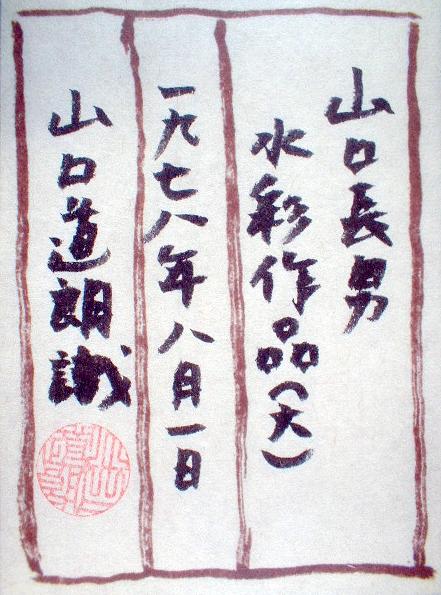 山口長男
水彩作品(大)
一九七八年八月一日
山口道朗識